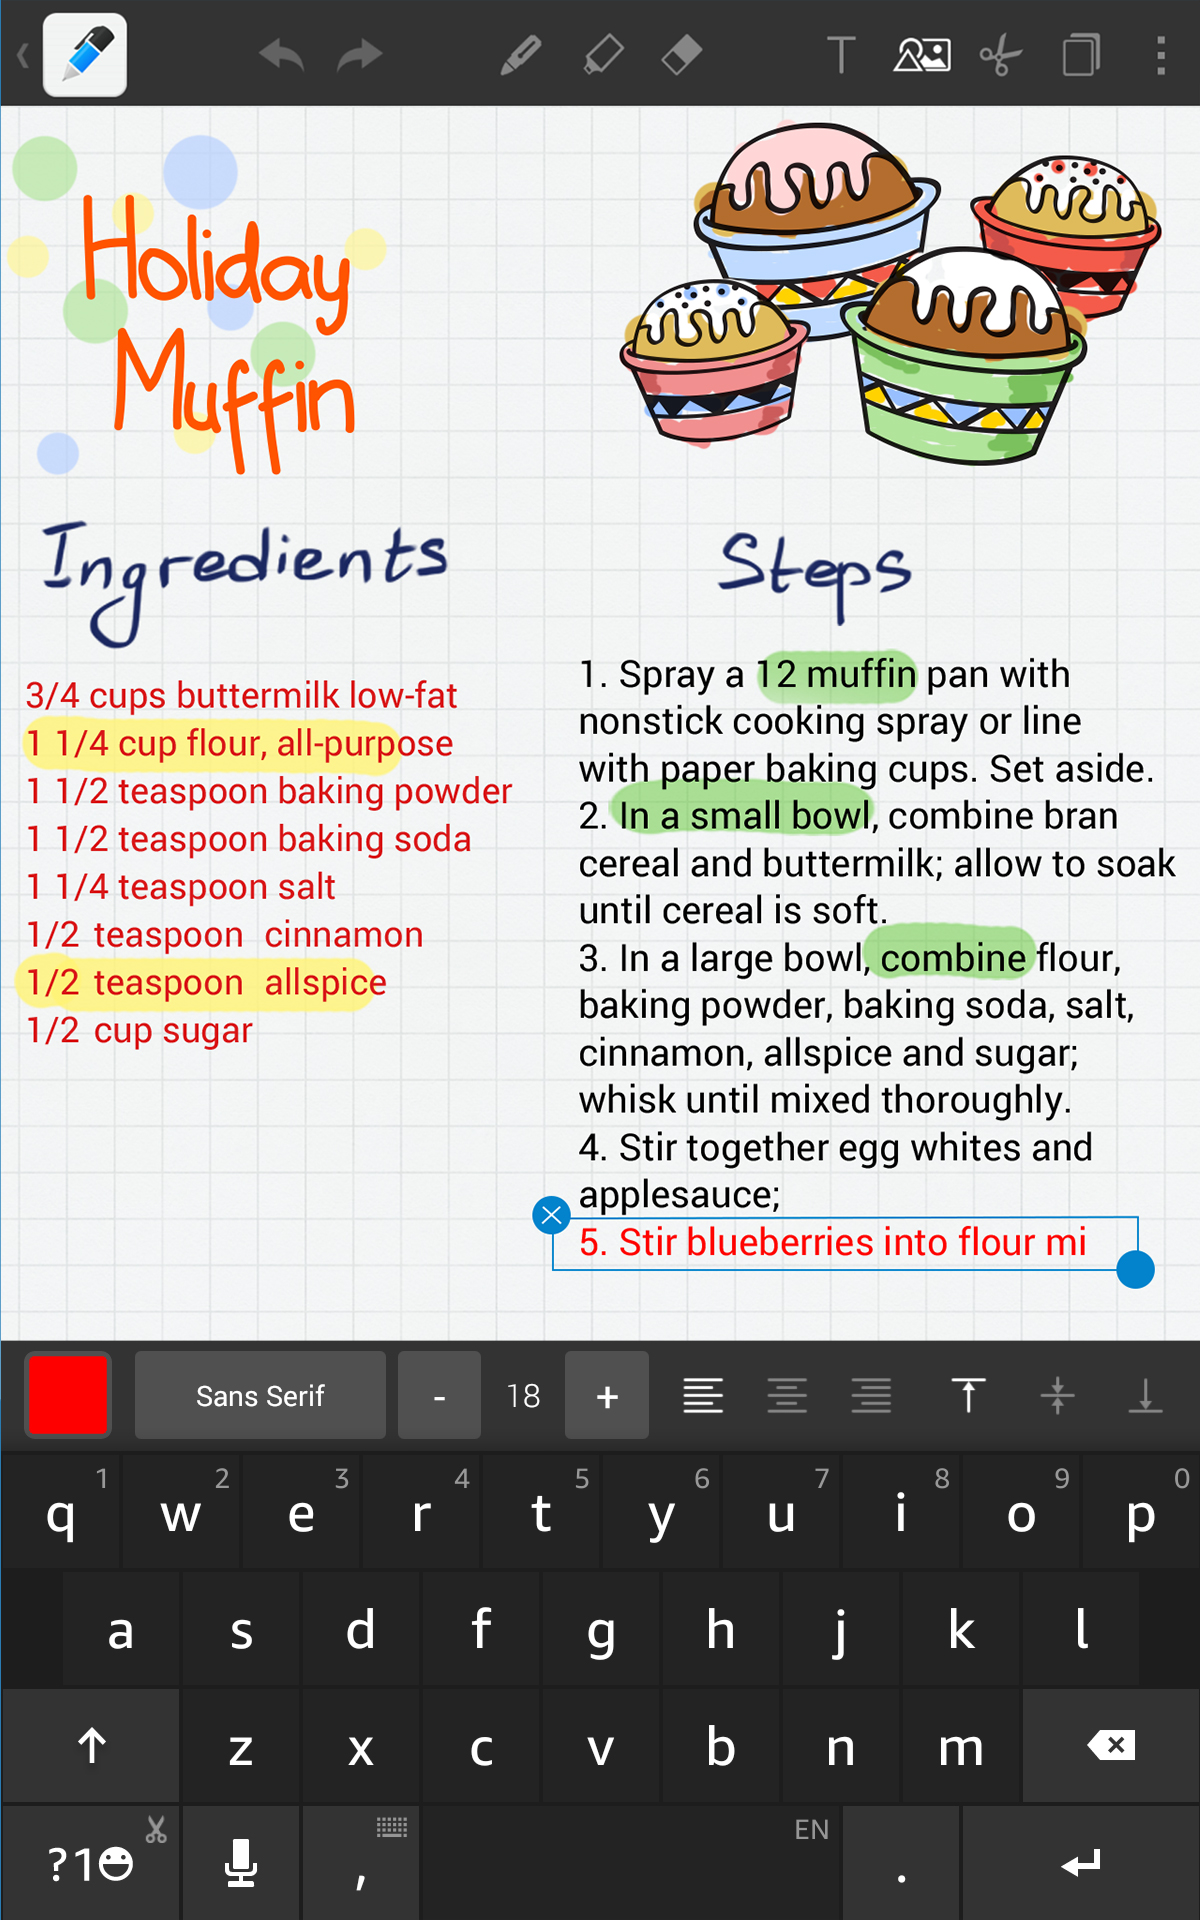 T
Holiday
Muffin
Ingredients
3/4 cups buttermilk low-fat
1 1/4 cup flour, all-purpose
1 1/2 teaspoon baking powder
1 1/2 teaspoon baking soda
1 1/4 teaspoon salt
1/2 teaspoon cinnamon
1/2 teaspoon allspice
1/2 cup sugar
Steps
1. Spray a 12 muffin pan with
nonstick cooking spray or line
with paper baking cups. Set aside.
2. In a small bowl, combine bran
cereal and buttermilk; allow to soak
until cereal is soft.
3. In a large bowl, combine flour,
baking powder, baking soda, salt,
cinnamon, allspice and sugar;
whisk until mixed thoroughly.
4. Stir together egg whites and
applesauce;
5. Stir blueberries into flour mi
Sans Serif - 18 +
1 2 3 4 5 6 7 8 9 0
q w e r t y u i o p
a s d f g h j k l
z x c v b n m
EN
?1 , .